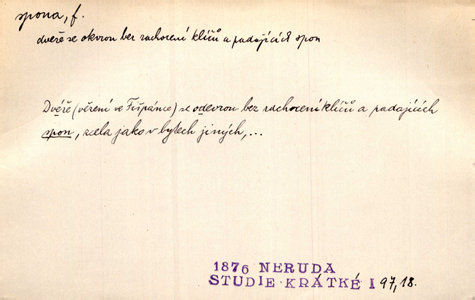 spona, f.
dveře se otevrou bez rachocení klíčů a padajících spon
Dvéře (věření ve Frišpánce) se odevrou bez rachocení klíčů a padajících
spon, zcela jako v bytech jiných,...
1876 NERUDA
STUDIE KRÁTKÉ I 97,18.